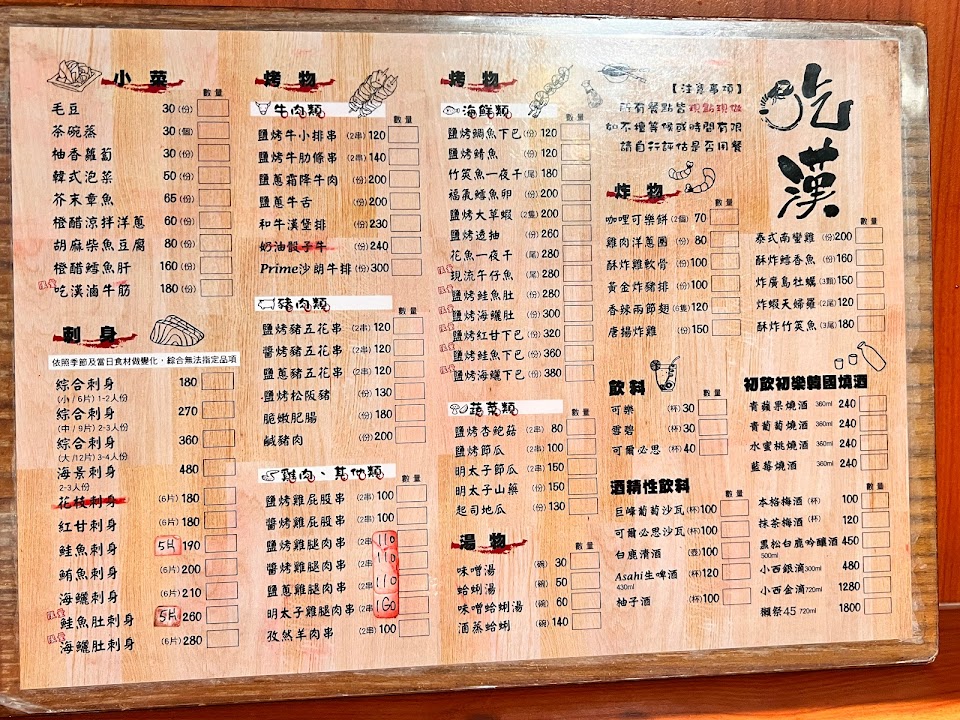 小菜
數量
毛豆 30(份)
茶碗蒸 30(個)
柚香蘿蔔 30(份)
韓式泡菜 50(份)
芥末章魚 65(份)
橙醋涼拌洋蔥 60(份)
胡麻柴魚豆腐 80(份)
橙醋鱈魚肝 160(份)
吃漢滷牛筋 180(份)
刺身
依照季節及當日食材做變化,綜合無法指定品項
綜合刺身 180
(小/6片)1-2人份
綜合刺身 270
(中/9片)2-3人份
綜合刺身 360
(大/12片)3-4人份
海景刺身 480
2-3人份
花枝刺身 (6片)180
紅甘刺身 (6片)180
鮭魚刺身 5片 190
鮪魚刺身 (6片)200
海鱺刺身 (6片)210
鮭魚肚刺身 5片 260
海鱺肚刺身 (6片)280
烤物
牛肉類
數量
鹽烤牛小排串 (2串)120
鹽烤牛肋條串 (2串)140
鹽蔥霜降牛肉 (份)200
鹽蔥牛舌 (份)200
和牛漢堡排 (份)230
奶油骰子牛 (份)240
Prime沙朗牛排 (份)300
豬肉類
數量
鹽烤豬五花串 (2串)120
醬烤豬五花串 (2串)120
鹽蔥豬五花串 (2串)120
鹽烤松阪豬 (份)130
脆嫩肥腸 (份)180
鹹豬肉 (份)200
雞肉、其他類
數量
鹽烤雞屁股串 (2串)100
醬烤雞屁股串 (2串)100
鹽烤雞腿肉串 (2串)110
醬烤雞腿肉串 (2串)110
鹽蔥雞腿肉串 (2串)110
明太子雞腿肉串 (2串)160
孜然羊肉串 (2串)100
烤物
海鮮類
數量
鹽烤鯛魚下巴 (份)120
鹽烤鯖魚 (份)120
竹筴魚一夜干 (尾)180
福氣鱈魚卵 (份)200
鹽烤大草蝦 (2隻)200
鹽烤透抽 (份)260
花魚一夜干 (尾)280
現流午仔魚 (尾)280
鹽烤鮭魚肚 (份)280
鹽烤海鱺肚 (份)300
鹽烤紅甘下巴 (份)320
鹽烤鮭魚下巴 (份)360
鹽烤海鱺下巴 (份)380
蔬菜類
數量
鹽烤杏鮑菇 (份)80
鹽烤節瓜 (份)100
明太子節瓜 (份)150
明太子山藥 (份)150
起司地瓜 (份)130
湯物
數量
味噌湯 (碗)30
蛤蜊湯 (碗)50
味噌蛤蜊湯 (碗)60
酒蒸蛤蜊 (碗)140
【注意事項】
所有餐點皆現點現做
如不擅等候或時間有限
請自行評估是否用餐
吃漢
炸物
數量
咖哩可樂餅 (2個)70
雞肉洋蔥團 (份)80
酥炸雞軟骨 (份)100
黃金炸豬排 (份)100
香辣兩節翅 (6隻)120
唐揚炸雞 (份)150
數量
泰式南蠻雞 (份)200
酥炸鱈香魚 (份)160
炸廣島牡蠣 (3顆)150
炸蝦天婦羅 (2尾)120
酥炸竹筴魚 (3尾)180
飲料
數量
可樂 (杯)30
雪碧 (杯)30
可爾必思 (杯)40
初飲初樂韓國燒酒
青蘋果燒酒 360ml 240
青葡萄燒酒 360ml 240
水蜜桃燒酒 360ml 240
藍莓燒酒 360ml 240
酒精性飲料
數量
巨峰葡萄沙瓦 (杯)100
可爾必思沙瓦 (杯)100
白鹿清酒 (壺)100
Asahi生啤酒 (杯)120
430ml
柚子酒 (杯)100
數量
本格梅酒 (杯) 100
抹茶梅酒 (杯) 120
黑松白鹿吟釀酒 450
500ml
小西銀滴300ml 480
小西金滴720ml 1280
獺祭45 720ml 1800